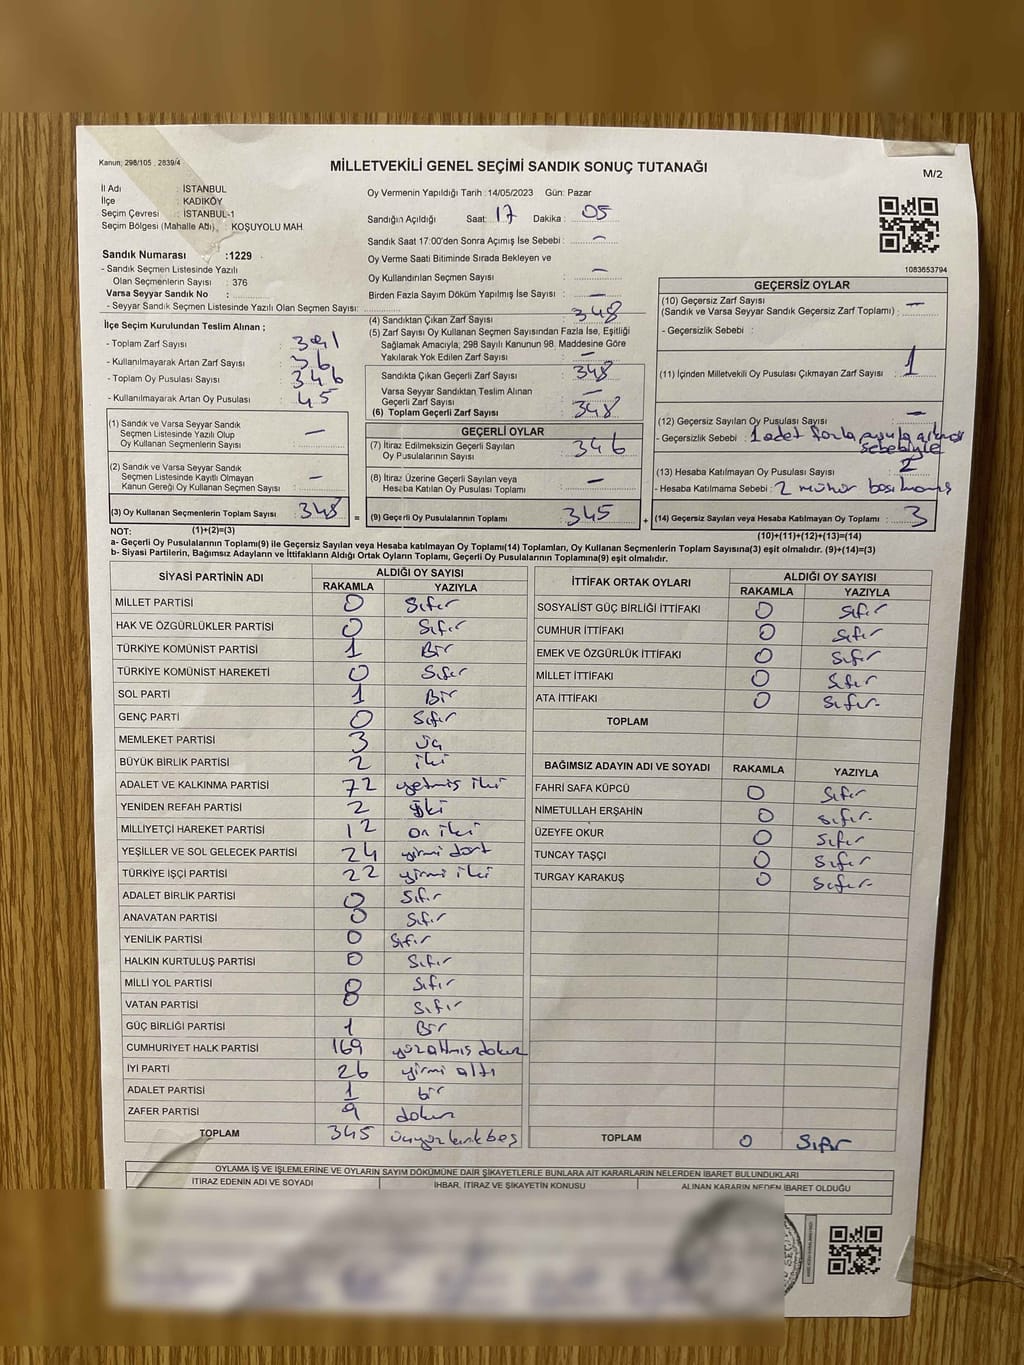 Kanun; 298/105 , 2839/4
MİLLETVEKİLİ GENEL SEÇİMİ SANDIK SONUÇ TUTANAĞI
M/2
İl Adı : İSTANBUL
İlçe : KADIKÖY
Seçim Çevresi : İSTANBUL-1
Seçim Bölgesi (Mahalle Adı) : KOŞUYOLU MAH.
Sandık Numarası :1229
- Sandık Seçmen Listesinde Yazılı
Olan Seçmenlerin Sayısı : 376
Varsa Seyyar Sandık No :
- Seyyar Sandık Seçmen Listesinde Yazılı Olan Seçmen Sayısı:
İlçe Seçim Kurulundan Teslim Alınan ;
- Toplam Zarf Sayısı
- Kullanılmayarak Artan Zarf Sayısı 36
- Toplam Oy Pusulası Sayısı 346
- Kullanılmayarak Artan Oy Pusulası 45
(1) Sandık ve Varsa Seyyar Sandık
Seçmen Listesinde Yazılı Olup
Oy Kullanan Seçmenlerin Sayısı : —
(2) Sandık ve Varsa Seyyar Sandık
Seçmen Listesinde Kayıtlı Olmayan
Kanun Gereği Oy Kullanan Seçmen Sayısı : —
(3) Oy Kullanan Seçmenlerin Toplam Sayısı : 348
Oy Vermenin Yapıldığı Tarih :14/05/2023 Gün: Pazar
Sandığın Açıldığı Saat: 17 Dakika : 05
Sandık Saat 17:00'den Sonra Açımış İse Sebebi : —
Oy Verme Saati Bitiminde Sırada Bekleyen ve
Oy Kullandırılan Seçmen Sayısı : —
Birden Fazla Sayım Döküm Yapılmış İse Sayısı : —
(4) Sandıktan Çıkan Zarf Sayısı : 348
(5) Zarf Sayısı Oy Kullanan Seçmen Sayısından Fazla İse, Eşitliği
Sağlamak Amacıyla; 298 Sayılı Kanunun 98. Maddesine Göre
Yakılarak Yok Edilen Zarf Sayısı : —
Sandıkta Çıkan Geçerli Zarf Sayısı : 348
Varsa Seyyar Sandıktan Teslim Alınan
Geçerli Zarf Sayısı : —
(6) Toplam Geçerli Zarf Sayısı : 348
GEÇERLİ OYLAR
(7) İtiraz Edilmeksizin Geçerli Sayılan
Oy Pusulalarının Sayısı : 346
(8) İtiraz Üzerine Geçerli Sayılan veya
Hesaba Katılan Oy Pusulası Toplamı : —
= (9) Geçerli Oy Pusulalarının Toplamı : 345
1083653794
GEÇERSİZ OYLAR
(10) Geçersiz Zarf Sayısı
(Sandık ve Varsa Seyyar Sandık Geçersiz Zarf Toplamı) : —
- Geçersizlik Sebebi :
(11) İçinden Milletvekili Oy Pusulası Çıkmayan Zarf Sayısı : 1
(12) Geçersiz Sayılan Oy Pusulası Sayısı : —
- Geçersizlik Sebebi : 1 adet fazla pusula
sebebiyle
(13) Hesaba Katılmayan Oy Pusulası Sayısı : 2
- Hesaba Katılmama Sebebi : 2 mühür basılmamış
+ (14) Geçersiz Sayılan veya Hesaba Katılmayan Oy Toplamı : 3
NOT: (1)+(2)=(3) (10)+(11)+(12)+(13)=(14)
a- Geçerli Oy Pusulalarının Toplamı(9) ile Geçersiz Sayılan veya Hesaba Katılmayan Oy Toplamı(14) Toplamları, Oy Kullanan Seçmenlerin Toplam Sayısına(3) eşit olmalıdır. (9)+(14)=(3)
b- Siyasi Partilerin, Bağımsız Adayların ve İttifakların Aldığı Ortak Oyların Toplamı, Geçerli Oy Pusulalarının Toplamına(9) eşit olmalıdır.
SİYASİ PARTİNİN ADI ALDIĞI OY SAYISI
RAKAMLA YAZIYLA
MİLLET PARTİSİ 0 Sıfır
HAK VE ÖZGÜRLÜKLER PARTİSİ 0 Sıfır
TÜRKİYE KOMÜNİST PARTİSİ 1 Bir
TÜRKİYE KOMÜNİST HAREKETİ 0 Sıfır
SOL PARTİ 1 Bir
GENÇ PARTİ 0 Sıfır
MEMLEKET PARTİSİ 3 üç
BÜYÜK BİRLİK PARTİSİ 2 iki
ADALET VE KALKINMA PARTİSİ 72 yetmiş iki
YENİDEN REFAH PARTİSİ 2 iki
MİLLİYETÇİ HAREKET PARTİSİ 12 on iki
YEŞİLLER VE SOL GELECEK PARTİSİ 24 yirmi dört
TÜRKİYE İŞÇİ PARTİSİ 22 yirmi iki
ADALET BİRLİK PARTİSİ 0 Sıfır
ANAVATAN PARTİSİ 0 Sıfır
YENİLİK PARTİSİ 0 Sıfır
HALKIN KURTULUŞ PARTİSİ 0 Sıfır
MİLLİ YOL PARTİSİ 0 Sıfır
VATAN PARTİSİ 0 Sıfır
GÜÇ BİRLİĞİ PARTİSİ 1 Bir
CUMHURİYET HALK PARTİSİ 169 yüzaltmış dokuz
İYİ PARTİ 26 yirmi altı
ADALET PARTİSİ 1 bir
ZAFER PARTİSİ 9 dokuz
TOPLAM 345 üçyüzkırkbeş
İTTİFAK ORTAK OYLARI ALDIĞI OY SAYISI
RAKAMLA YAZIYLA
SOSYALİST GÜÇ BİRLİĞİ İTTİFAKI 0 Sıfır
CUMHUR İTTİFAKI 0 Sıfır
EMEK VE ÖZGÜRLÜK İTTİFAKI 0 Sıfır
MİLLET İTTİFAKI 0 Sıfır
ATA İTTİFAKI 0 Sıfır
TOPLAM
BAĞIMSIZ ADAYIN ADI VE SOYADI RAKAMLA YAZIYLA
FAHRİ SAFA KÜPCÜ 0 Sıfır
NİMETULLAH ERŞAHİN 0 Sıfır
ÜZEYFE OKUR 0 Sıfır
TUNCAY TAŞÇI 0 Sıfır
TURGAY KARAKUŞ 0 Sıfır
TOPLAM 0 Sıfır
OYLAMA İŞ VE İŞLEMLERİNE VE OYLARIN SAYIM DÖKÜMÜNE DAİR ŞİKAYETLERLE BUNLARA AİT KARARLARIN NELERDEN İBARET BULUNDUKLARI
İTİRAZ EDENİN ADI VE SOYADI İHBAR, İTİRAZ VE ŞİKAYETİN KONUSU ALINAN KARARIN NEDEN İBARET OLDUĞU